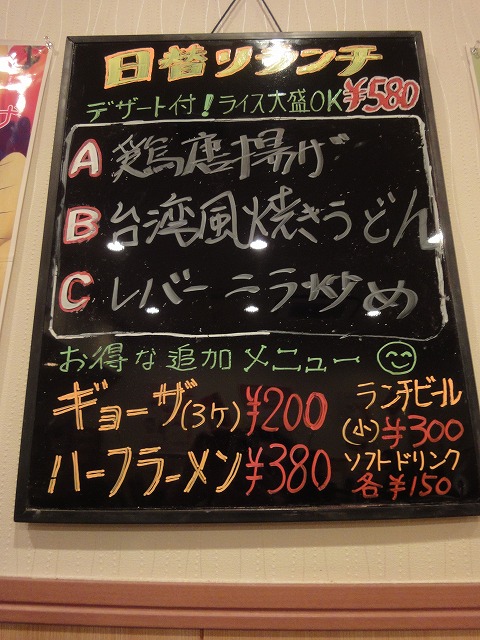 日替りランチ
デザート付！ライス大盛OK ¥580
A 鶏唐揚げ
B 台湾風焼きうどん
C レバーニラ炒め
お得な追加メニュー
ギョーザ(3ケ) ¥200
ハーフラーメン ¥380
ランチビール
(小) ¥300
ソフトドリンク
各¥150